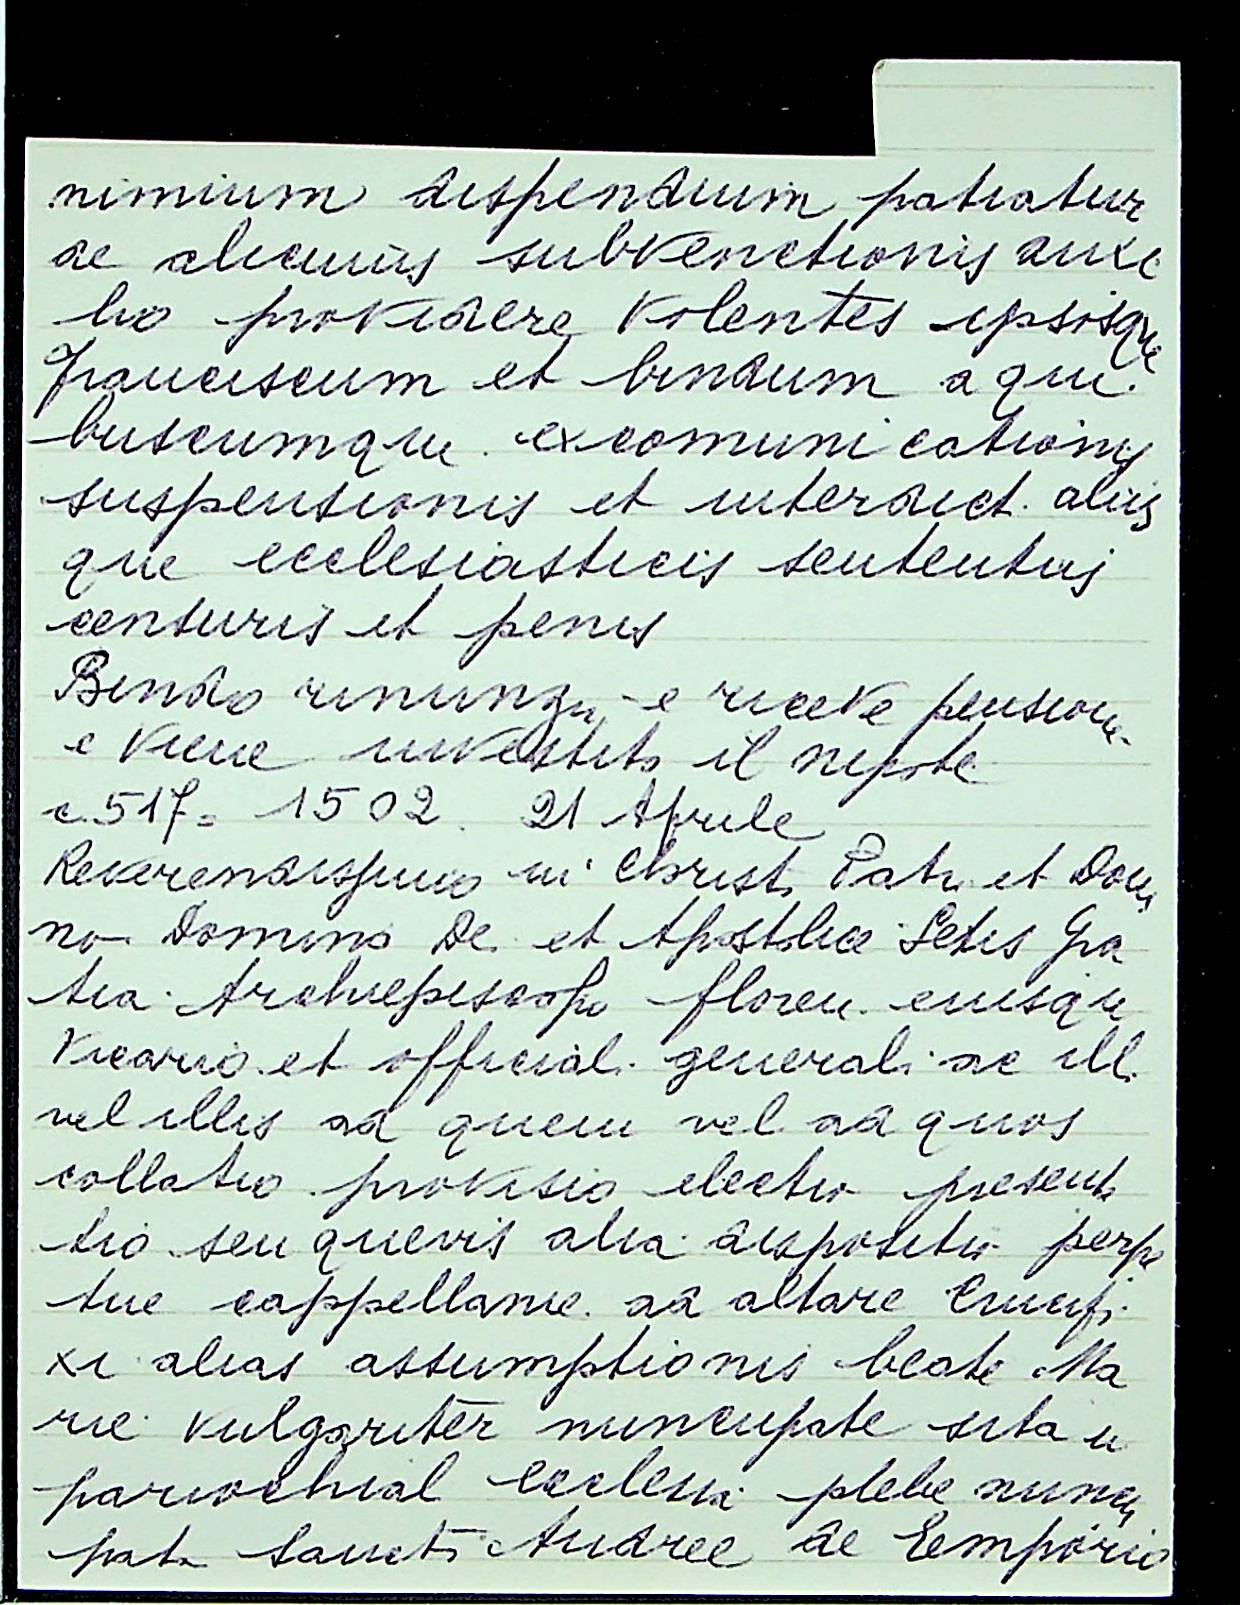 nimium dispendium patiatur
de alicuius subventionis auxi
lio providere volentes ipsosque
franciscum et bindum a qui.
buscumque excomunicationis
suspensionis et interdict. aliis
que ecclesiasticis sententiis
censuris et penis
Bindo rinunzia e riceve pensione
e viene investito il nepote
c. 517= 1502. 21 Aprile
Reverendissimo in Christi Patri et Domi
no Domino Dei et Apostolice Sedis Gra
tia Archiepiscopo floren. eiusque
Vicario et officiali generali ac ill.
vel illis ad quem vel ad quos
collatio provisio electio presenta
tio seu quevis alia dispositio perpe
tue cappellanie ad altare Crucifi
xi alias assumptionis beate Ma
rie vulgariter nuncupate sita in
parrochial ecclesia plebe nuncu
pata Sancti Andree de Empório